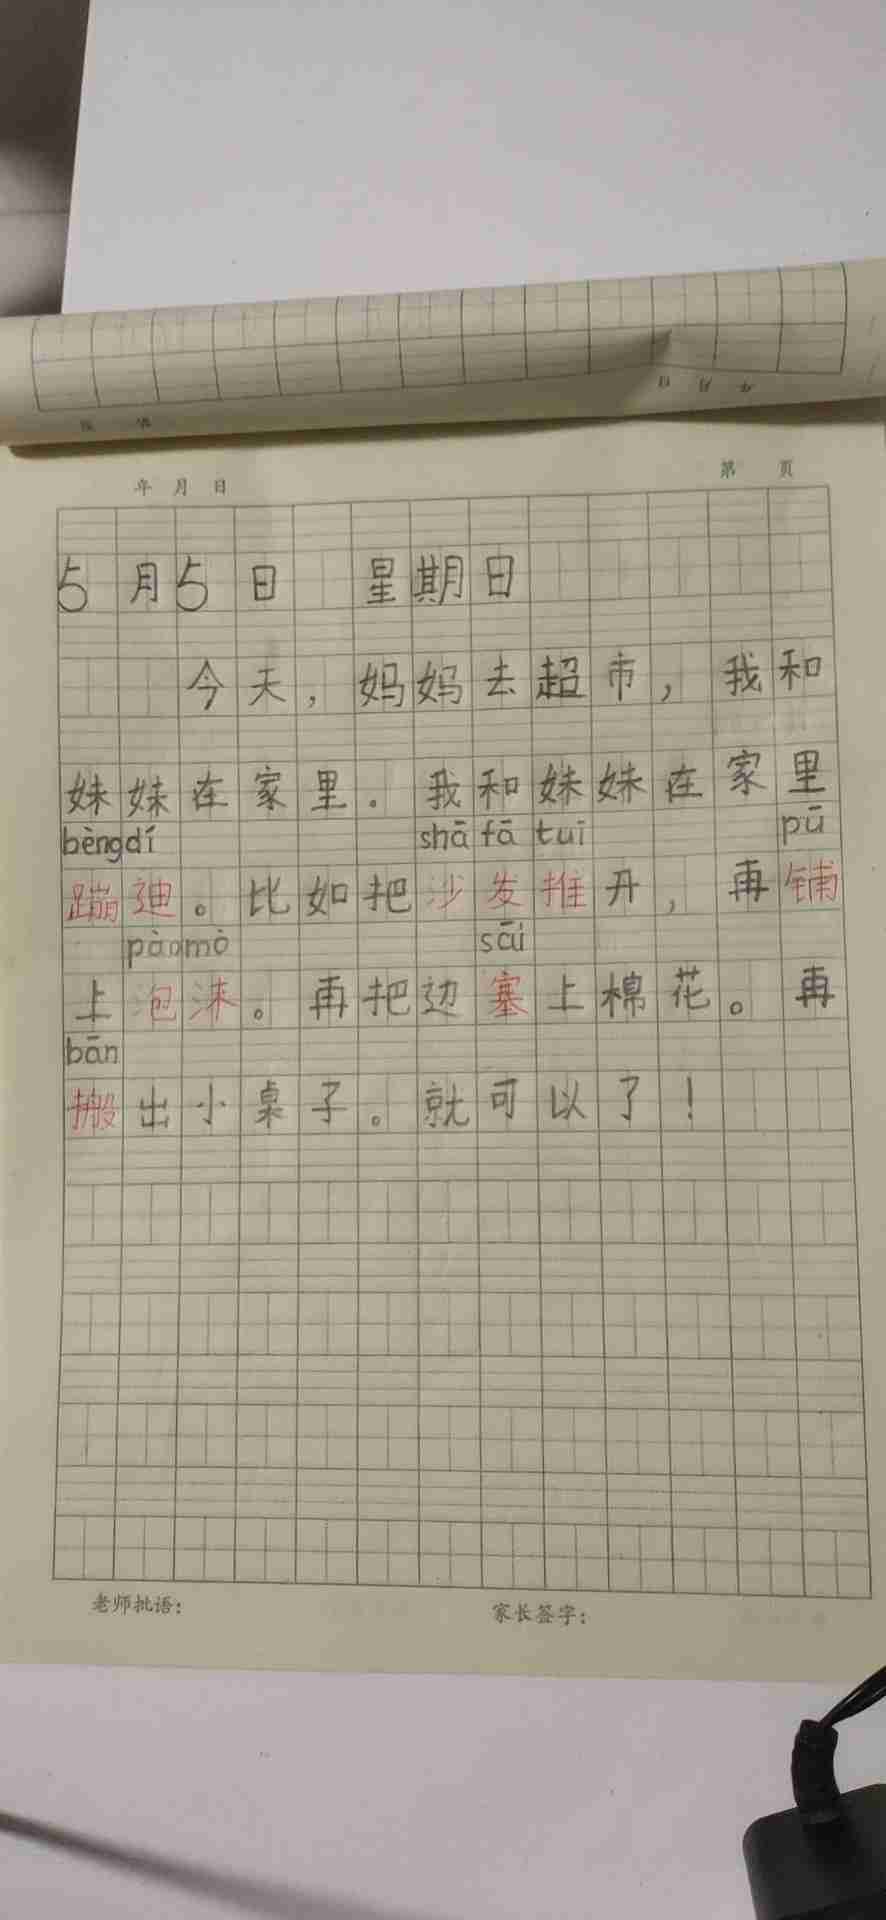 年 月 日
第 页
5月5日 星期日
今天，妈妈去超市，我和
妹妹在家里。我和妹妹在家里
bèngdí shā fā tuī pū
蹦迪。比如把沙发推开，再铺
pàomò sāi
上泡沫。再把边塞上棉花。再
bān
搬出小桌子。就可以了！
老师批语：
家长签字：